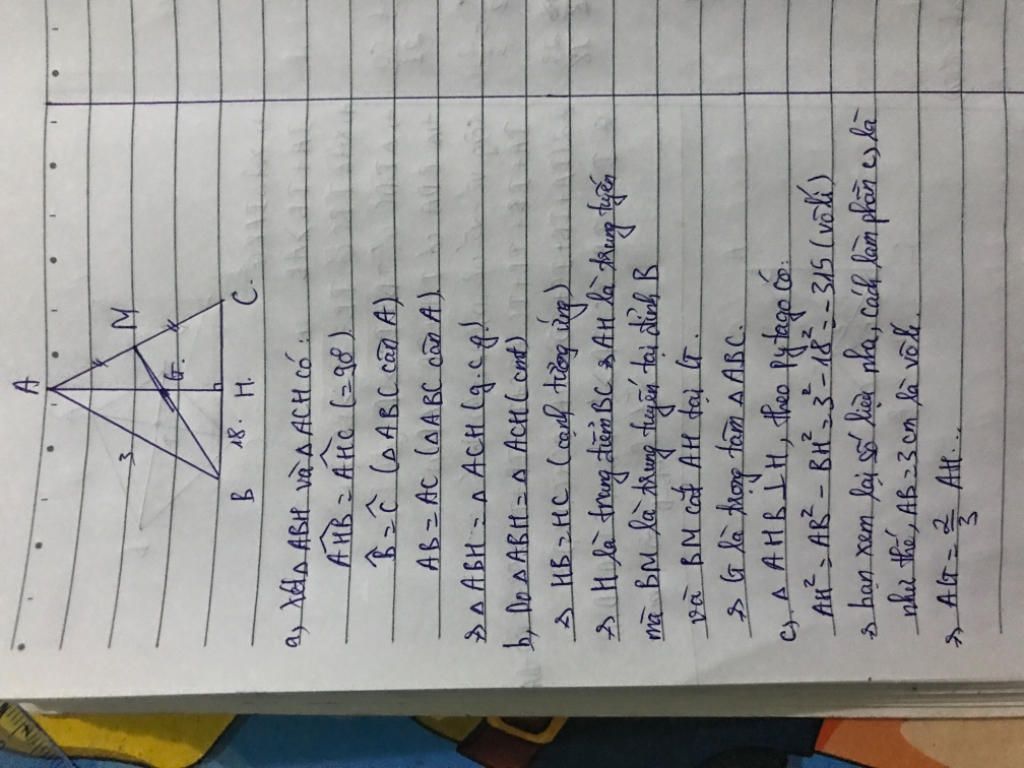 A
M
3
G.
B
18.
H.
C.
a, Xét △ABH và △ACH có:
AHB = AHC (= 90)
B = C (△ABC cân A)
AB = AC (△ABC cân A)
=> △ABH = △ACH (g.c.g)
b, Do △ABH = △ACH (cmt)
=> HB = HC (cạnh tương ứng)
=> H là trung điểm BC => AH là trung tuyến
mà BM là trung tuyến tại đỉnh B
và BM cắt AH tại G.
=> G là trọng tâm △ABC.
c, △AHB ⊥ H, theo Pytago có:
AH² = AB² - BH² = 3² - 18² = - 315 (vô lí)
=> bạn xem lại số liệu nha, cách làm phần c, là
như thế, AB = 3 cm là vô lí.
=> AG = 2/3 AH..